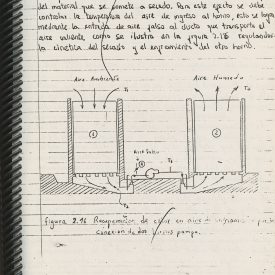 del material que se somete a secado. Para este efecto se debe
controlar la temperatura del aire de ingreso al horno, esto se logra
mediante la entrada de aire falso al ducto que transporta el
aire caliente como se ilustra en la figura 2.16 regulandose
la cinética del secado y el enfriamiento del otro horno.
Aire Ambiente
Aire Humedo
T1
1
2
Aire Falso
Figura 2.16 Recuperación de calor en
conexión de dos hornos pampa.